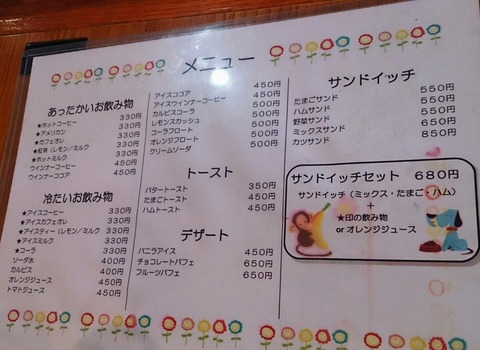 メニュー
あったかいお飲み物
★ホットコーヒー 330円
★アメリカン 330円
★カフェオレ 330円
★紅茶(レモン/ミルク 330円
★ホットミルク 330円
ウインナーコーヒー 450円
ウインナーココア 450円
冷たいお飲み物
★アイスコーヒー 330円
★アイスカフェオレ 330円
★アイスティー(レモン/ミルク 330円
★アイスミルク 330円
★コーラ 330円
ソーダ水 400円
カルピス 400円
オレンジジュース 450円
トマトジュース 450円
アイスココア 450円
アイスウインナーコーヒー 450円
カルピスコーラ 500円
レモンスカッシュ 500円
コーラフロート 500円
オレンジフロート 500円
クリームソーダ 500円
トースト
バタートースト 350円
たまごトースト 450円
ハムトースト 450円
デザート
バニラアイス 450円
チョコレートパフェ 650円
フルーツパフェ 650円
サンドイッチ
たまごサンド 550円
ハムサンド 550円
野菜サンド 550円
ミックスサンド 650円
カツサンド 850円
サンドイッチセット 680円
サンドイッチ(ミックス・たまご・ハム)
+
★印の飲み物
or オレンジジュース